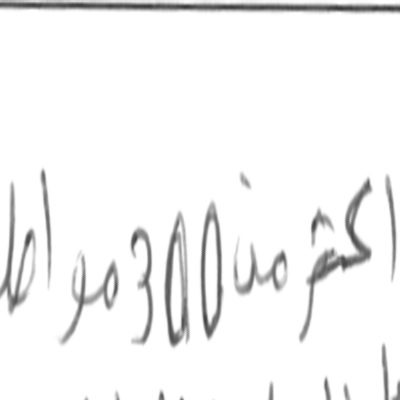 اكثر من 300 مواط